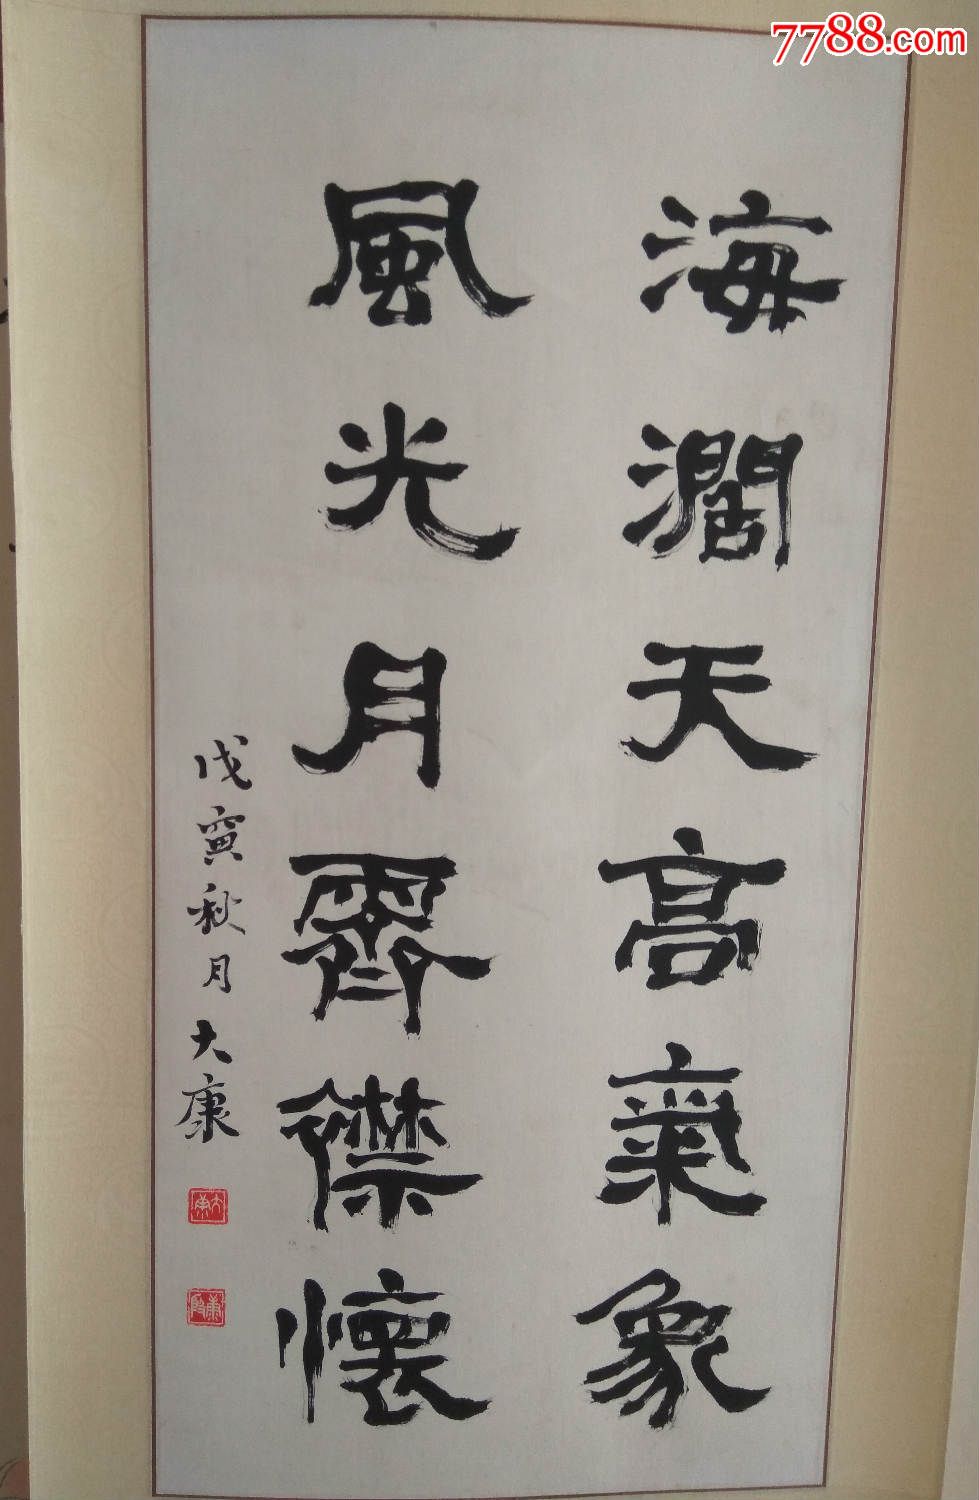 7788.com
海濶天高氣象
風光月霽襟懷
戊寅秋月大康
大康
康殷